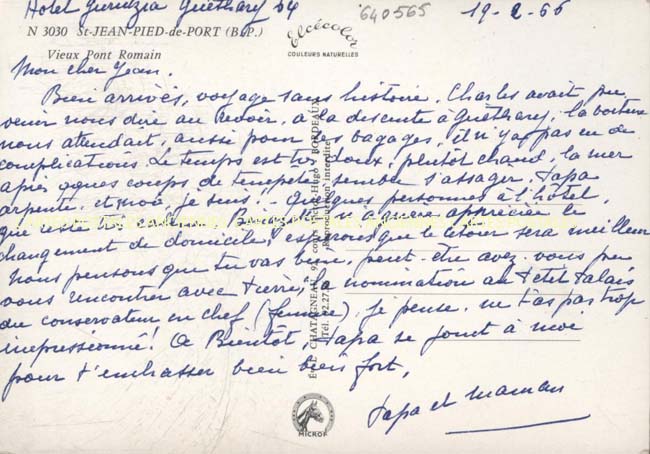 Hotel Guéthary 64
640565
19-2-66
N 3030 St-JEAN-PIED-de-PORT (B.P.)
Vieux Pont Romain
Elcécolor
COULEURS NATURELLES
Mon cher Jean.
Bien arrivés, voyage sans histoire. Charles avait pu
venir nous dire au revoir, à la descente à Guéthary, la voiture
nous attendait, aussi pour les bagages, il n'y a pas eu de
complications. Le temps est très doux, plutôt chaud, la mer
après qques coups de tempête semble s'assager. Papa
arpente et moi, je suis! - Quelques personnes à l'hôtel,
qui reste très calme. n'a guère appréciée le
changement de domicile, espérons que le retour sera meilleur
Nous pensons que tu vas bien, peut-être avez-vous pu
vous rencontrer avec Pierre, la nomination au Petit Palais
du conservateur en chef (femme) je pense ne t'as pas trop
impressionné! A Bientôt, Papa se joint à moi
pour t'embrasser bien bien fort,
Papa et Maman
CHATAGNEAU, cours Victor-Hugo BORDEAUX
Reproduction interdite
MICROF